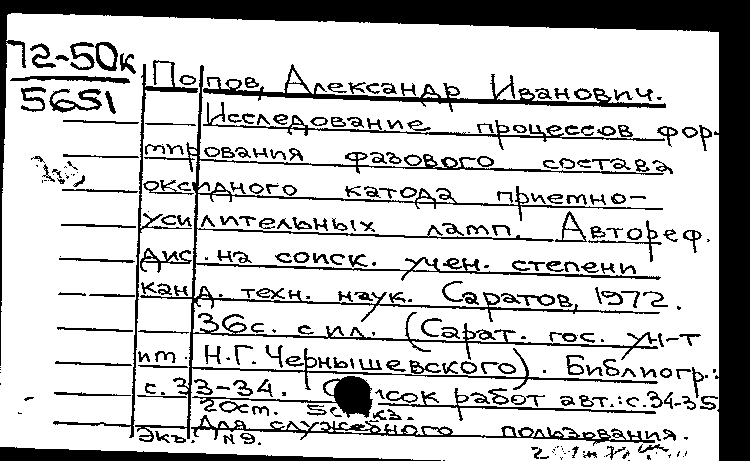 72-50к
5651
Попов, Александр Иванович.
Исследование процессов фор-
мирования фазового состава
оксидного катода приемно-
усилительных ламп. Автореф.
дис. на соиск. учен. степени
канд. техн. наук. Саратов, 1972.
36с. с ил. (Сарат. гос. ун-т
им. Н.Г. Чернышевского). Библиогр.:
с. 33-34. Список работ авт.: с. 34-35.
20см.
Для служебного пользования.
Экз. №9.